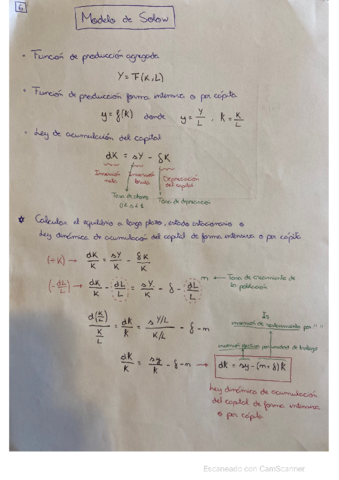 Modelo de Solow
· Función de producción agregada
Y = F(K,L)
· Función de producción forma intensiva o per cápita
y = f(k) donde y = Y/L , k = K/L
· Ley de acumulación del capital
dK = sY - δK
Inversión neta
Inversión bruta
Depreciación del capital
Tasa de ahorro
Tasa de depreciación
* Calcular el equilibrio a largo plazo, estado estacionario o
Ley dinámica de acumulación del capital de forma intensiva o per cápita
(÷K) → dK/K = sY/K - δK/K
(-dL/L) → dK/K - dL/L = sY/K - δ - dL/L
n → Tasa de crecimiento de la población
d(K/L)/(K/L) = dk/k = s Y/L / K/L - δ - n
dk/k = sy/k - δ - n → dk = sy - (n+δ)k
inversión de
por unidad de trabajo
Ley dinámica de acumulación
del capital de forma intensiva
o per cápita
Escaneado con CamScanner